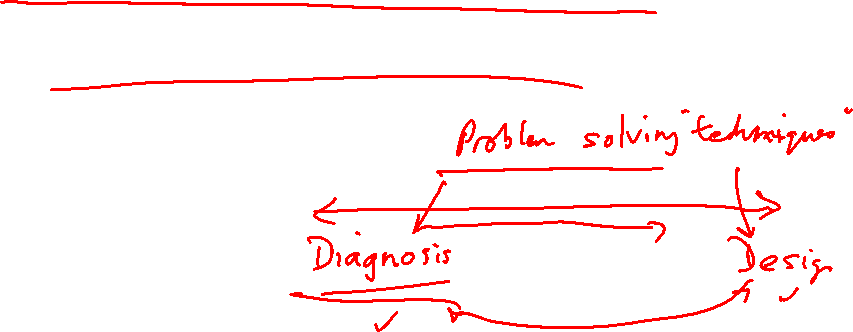 Problem solving "techniques"
Diagnosis
Design